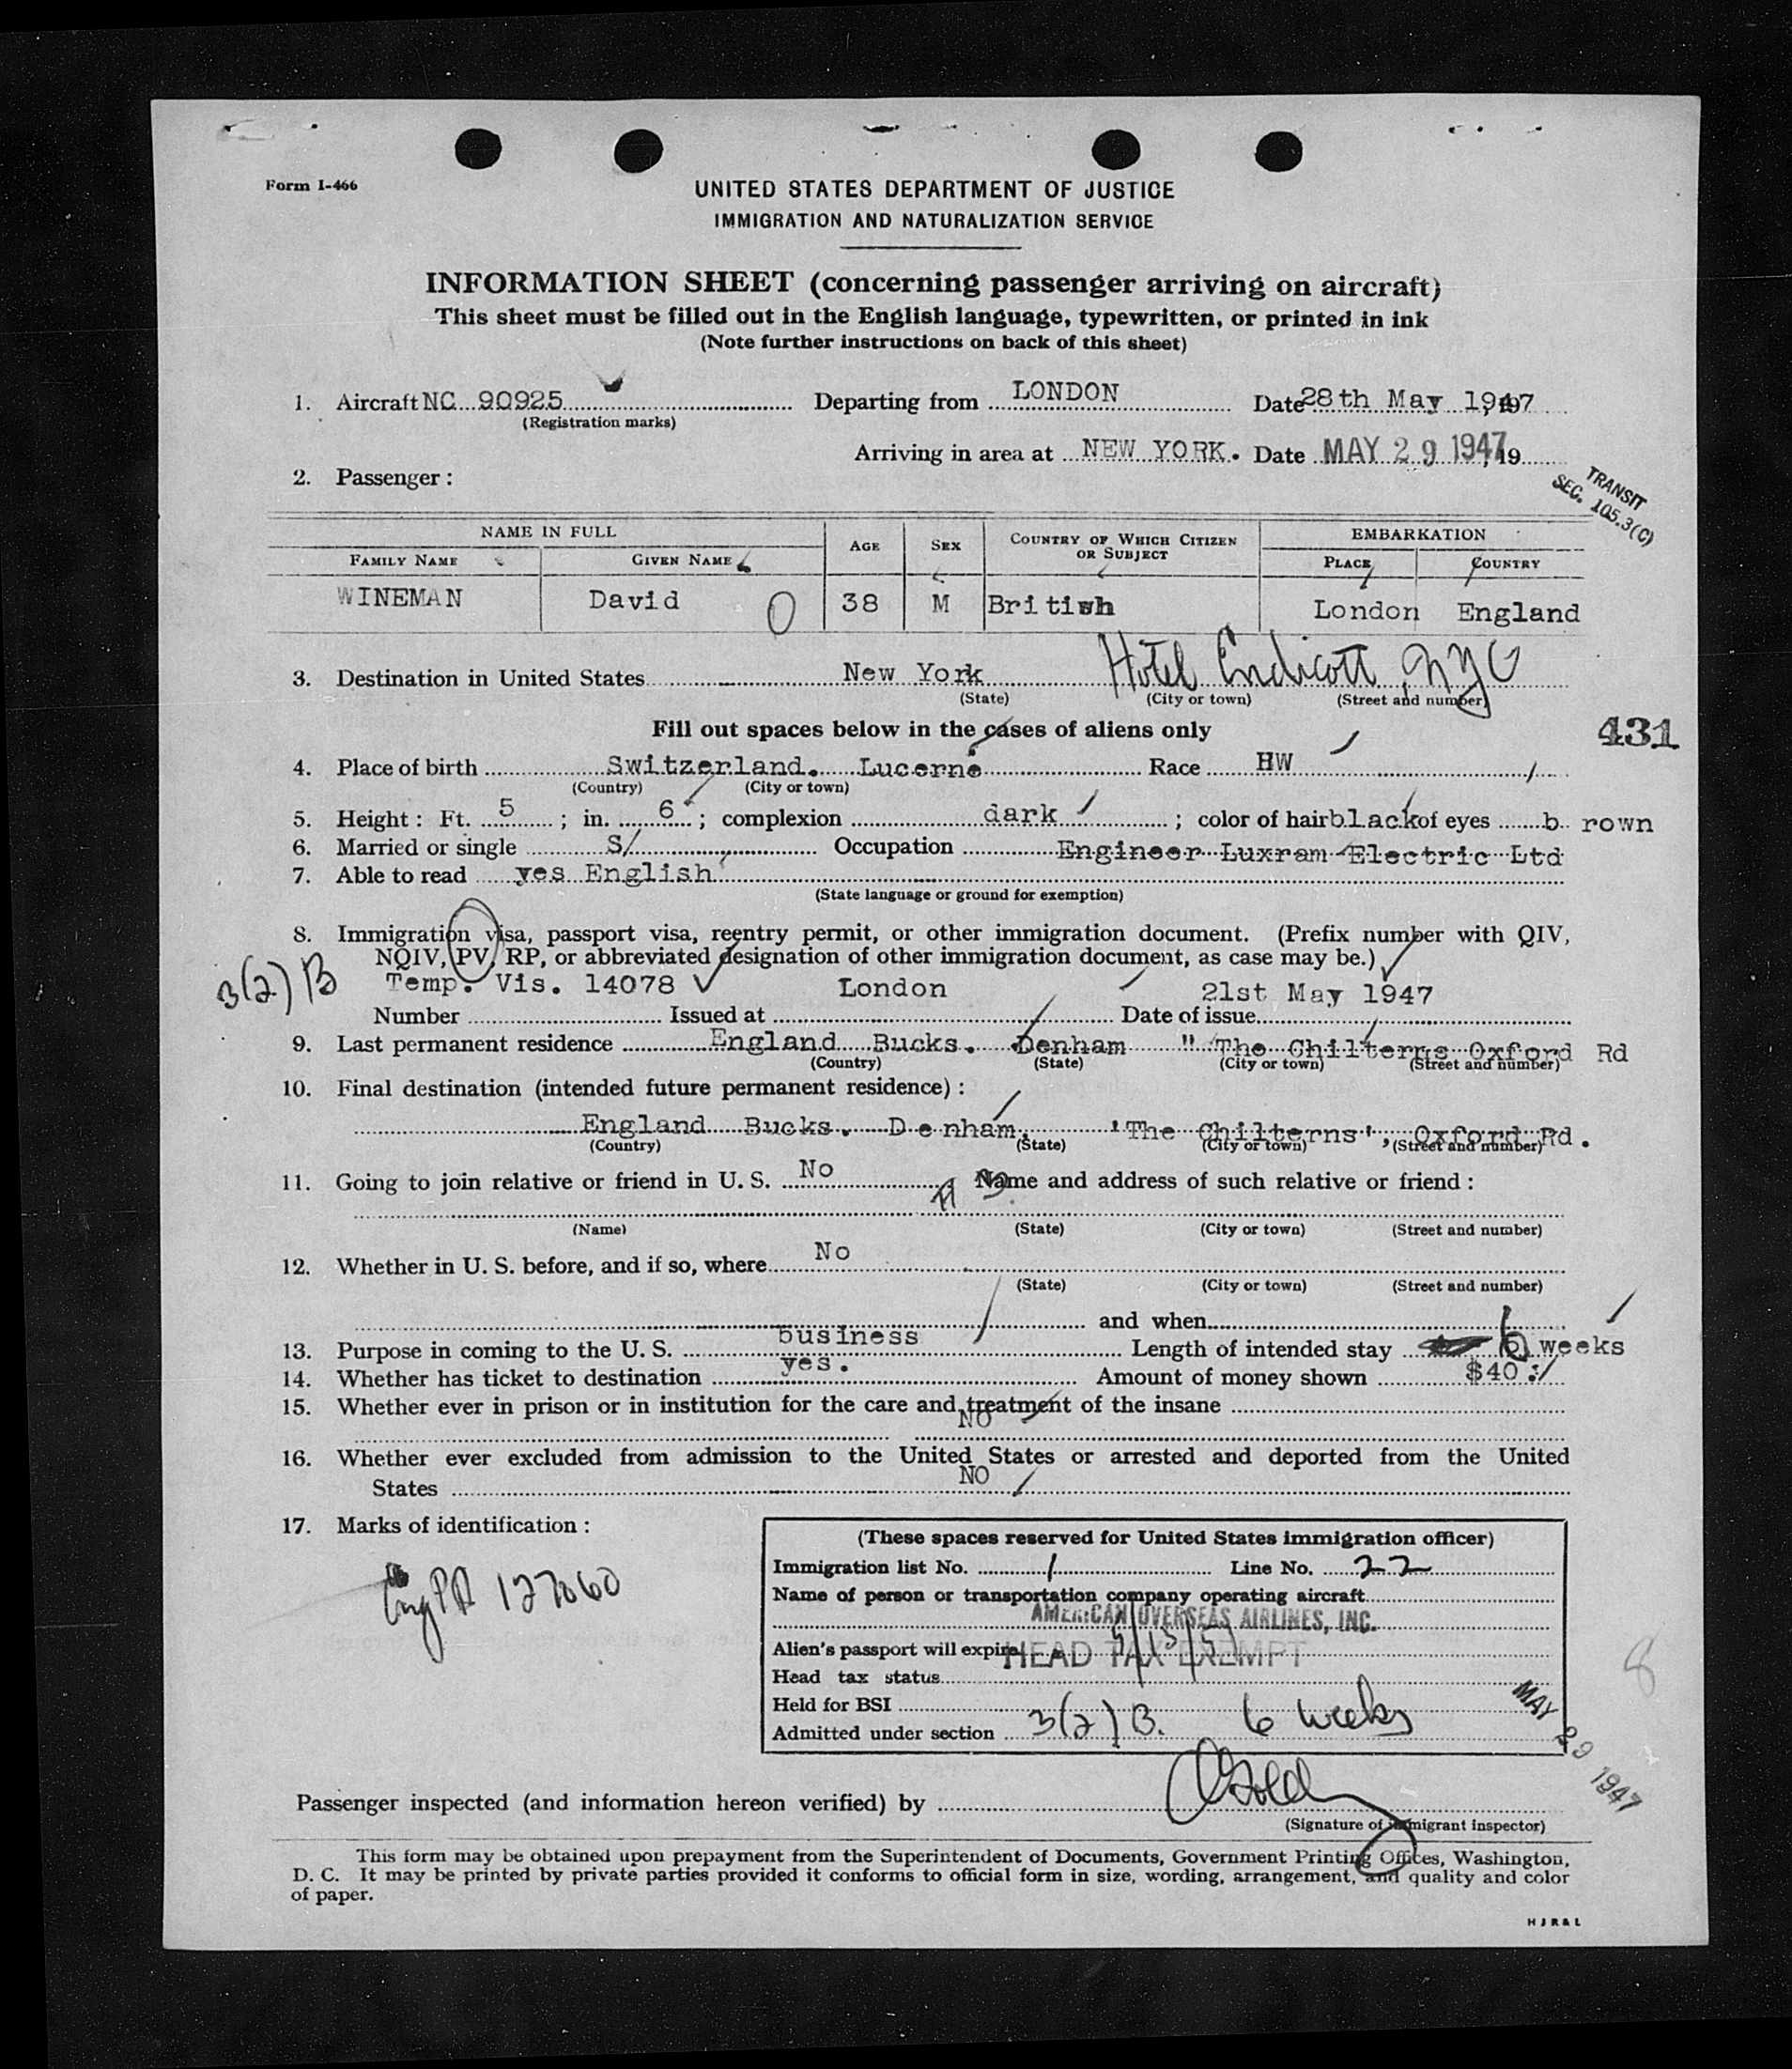 Form I-466
UNITED STATES DEPARTMENT OF JUSTICE
IMMIGRATION AND NATURALIZATION SERVICE
INFORMATION SHEET (concerning passenger arriving on aircraft)
This sheet must be filled out in the English language, typewritten, or printed in ink
(Note further instructions on back of this sheet)
1. Aircraft NC 90925 Departing from LONDON Date 28th May 1947
(Registration marks)
Arriving in area at NEW YORK. Date MAY 29 1947, 19
2. Passenger:
TRANSIT
SEC. 105.3(C)
NAME IN FULL AGE SEX COUNTRY OF WHICH CITIZEN OR SUBJECT EMBARKATION
FAMILY NAME GIVEN NAME PLACE COUNTRY
WINEMAN David 0 38 M British London England
3. Destination in United States New York Hotel Endicott NYC
(State) (City or town) (Street and number)
Fill out spaces below in the cases of aliens only
431
4. Place of birth Switzerland. Lucerne Race HW
(Country) (City or town)
5. Height: Ft. 5; in. 6; complexion dark; color of hair black of eyes b rown
6. Married or single S/ Occupation Engineer Luxram Electric Ltd
7. Able to read yes English
(State language or ground for exemption)
8. Immigration visa, passport visa, reentry permit, or other immigration document. (Prefix number with QIV,
NQIV, PV, RP, or abbreviated designation of other immigration document, as case may be.)
3(2)B Temp. Vis. 14078 London 21st May 1947
Number Issued at Date of issue
9. Last permanent residence England Bucks. Denham " The Chilterns Oxford Rd
(Country) (State) (City or town) (Street and number)
10. Final destination (intended future permanent residence):
England Bucks. Denham, 'The Chilterns", Oxford Rd.
(Country) (State) (City or town) (Street and number)
11. Going to join relative or friend in U. S. No Name and address of such relative or friend:
(Name) (State) (City or town) (Street and number)
12. Whether in U. S. before, and if so, where No
(State) (City or town) (Street and number)
and when
13. Purpose in coming to the U. S. business Length of intended stay 6 weeks
14. Whether has ticket to destination yes. Amount of money shown $40
15. Whether ever in prison or in institution for the care and treatment of the insane
NO
16. Whether ever excluded from admission to the United States or arrested and deported from the United
States NO
17. Marks of identification:
127060
(These spaces reserved for United States immigration officer)
Immigration list No. 1 Line No. 22
Name of person or transportation company operating aircraft
AMERICAN OVERSEAS AIRLINES, INC.
Alien's passport will expire
HEAD TAX EXEMPT
Head tax status
Held for BSI
Admitted under section 3(2)B. 6 weeks
8
MAY 29 1947
Passenger inspected (and information hereon verified) by
(Signature of immigrant inspector)
This form may be obtained upon prepayment from the Superintendent of Documents, Government Printing Offices, Washington,
D. C. It may be printed by private parties provided it conforms to official form in size, wording, arrangement, and quality and color
of paper.
H J R & L